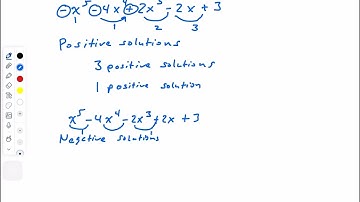 -x⁵ - 4x⁴ + 2x³ - 2x + 3
1 2 3
Positive solutions
3 positive solutions
1 positive solution
x⁵ - 4x⁴ - 2x³ + 2x + 3
Negative solutions